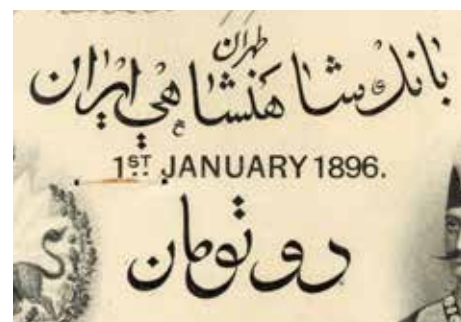 طهران
بانک شاهنشاهی ایران
1ST JANUARY 1896.
دو تومان